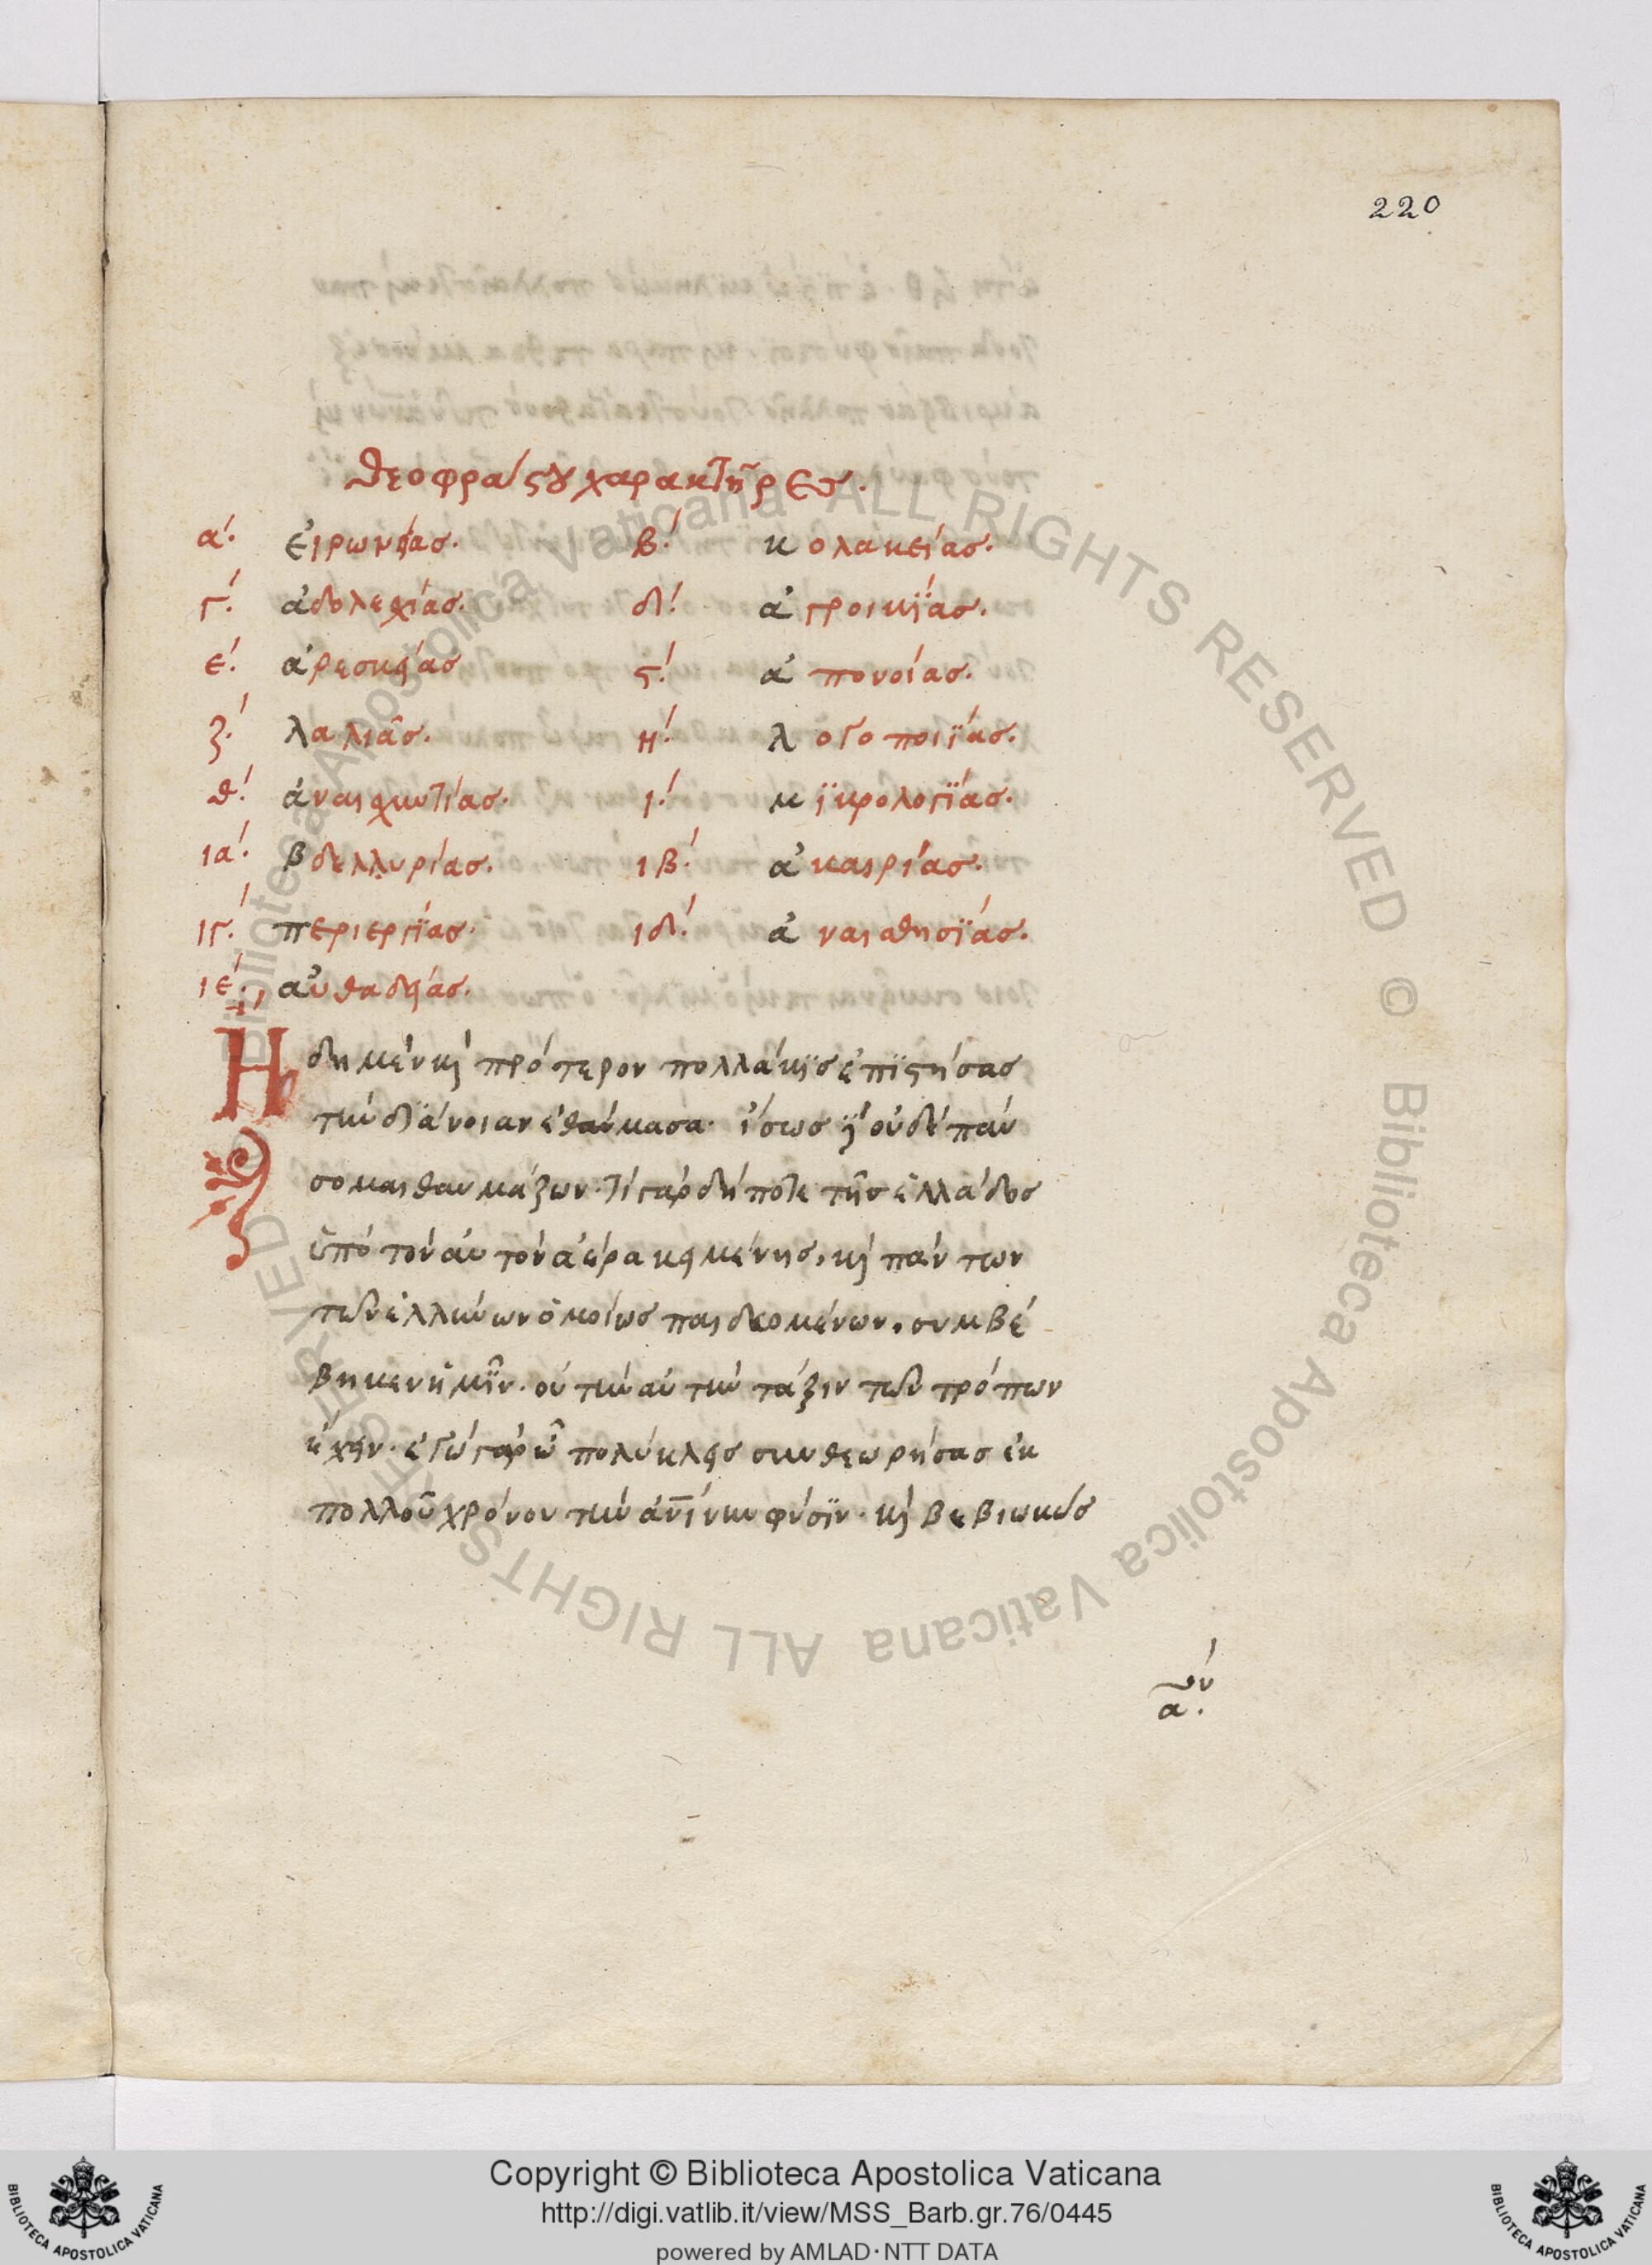 220
θεοφράστου χαρακτῆρες.
α΄. εἰρωνείας. β΄. κολακείας.
γ΄. ἀδολεσχίας. δ΄. ἀγροικΐας.
ε΄. ἀρεσκείας ϛ΄. ἀπονοίας.
ζ΄. λαλιᾶς. η΄. λογοποιΐας.
θ΄. ἀναισχυντίας. ι΄. μϊκρολογΐας.
ια΄. βδελλυρίας. ιβ΄. ἀκαιρίας.
ιγ΄. περιεργΐας. ιδ΄. ἀναισθησΐας.
ιε΄. αὐθαδείας.
Ἤδη μὲν καὶ πρότερον πολλάκϊς ἐπϊστήσας
τὴν διάνοιαν ἐθαύμασα. ἴσως δὲ οὐδὲ παύ
σομαι θαυμάζων. τί γὰρ δήποτε τῆς ἑλλάδος
ὑπὸ τὸν αὐτὸν ἀέρα κειμένης, καὶ πάντων
τῶν ἑλλήνων ὁμοίως παιδευομένων, συμβέ
βηκεν ἡμῖν. οὐ τὴν αὐτὴν τάξιν τῶν τρόπων
ἔχειν. ἐγὼ γὰρ ὦ πολύκλεις συνθεωρήσας ἐκ
πολλοῦ χρόνου τὴν ἀνίνην φύσϊν. καὶ βεβιωκὼς
Copyright © Biblioteca Apostolica Vaticana
http://digi.vatlib.it/view/MSS_Barb.gr.76/0445
powered by AMLAD·NTT DATA
BIBLIOTECA APOSTOLICA VATICANA
BIBLIOTECA APOSTOLICA VATICANA
Biblioteca Apostolica Vaticana ALL RIGHTS RESERVED © Biblioteca Apostolica Vaticana ALL RIGHTS RESERVED ©